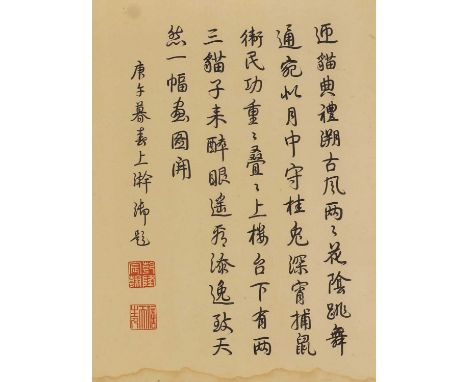 迎貓典禮溯古風两〻花陰跳舞
通宛似月中守桂兔深宵捕鼠
衛民功重〻叠〻上楼台下有两
三貓子来醉眼遥看添逸致天
然一幅畫圖開
庚午暮春上澣御題